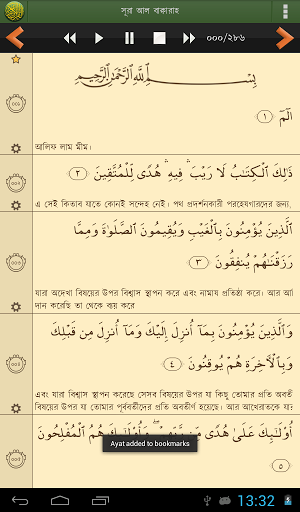 সূরা আল বাক্বারাহ
০০০/২৮৬
بِسْمِ اللَّهِ الرَّحْمَٰنِ الرَّحِيمِ
الٓمٓ ﴿١﴾
আলিফ লাম মীম।
ذَٰلِكَ الْكِتَٰبُ لَا رَيْبَ ۛ فِيهِ ۛ هُدًى لِّلْمُتَّقِينَ ﴿٢﴾
এ সেই কিতাব যাতে কোনই সন্দেহ নেই। পথ প্রদর্শনকারী পরহেযগারদের জন্য,
الَّذِينَ يُؤْمِنُونَ بِالْغَيْبِ وَيُقِيمُونَ الصَّلَوٰةَ وَمِمَّا
رَزَقْنَٰهُمْ يُنفِقُونَ ﴿٣﴾
যারা অদেখা বিষয়ের উপর বিশ্বাস স্থাপন করে এবং নামায প্রতিষ্ঠা করে। আর আমি
দান করেছি তা থেকে ব্যয় করে
وَالَّذِينَ يُؤْمِنُونَ بِمَآ أُنزِلَ إِلَيْكَ وَمَآ أُنزِلَ مِن قَبْلِكَ
وَبِالْءَاخِرَةِ هُمْ يُوقِنُونَ ﴿٤﴾
এবং যারা বিশ্বাস স্থাপন করেছে সেসব বিষয়ের উপর যা কিছু তোমার প্রতি অবতী
বিষয়ের উপর যা তোমার পূর্ববর্তীদের প্রতি অবতীর্ণ হয়েছে। আর আখেরাতকে যা
أُولَٰٓئِكَ عَلَىٰ هُدًى مِّن رَّبِّهِمْ ۖ وَأُولَٰٓئِكَ هُمُ الْمُفْلِحُونَ
﴿٥﴾
Ayat added to bookmarks
13:32